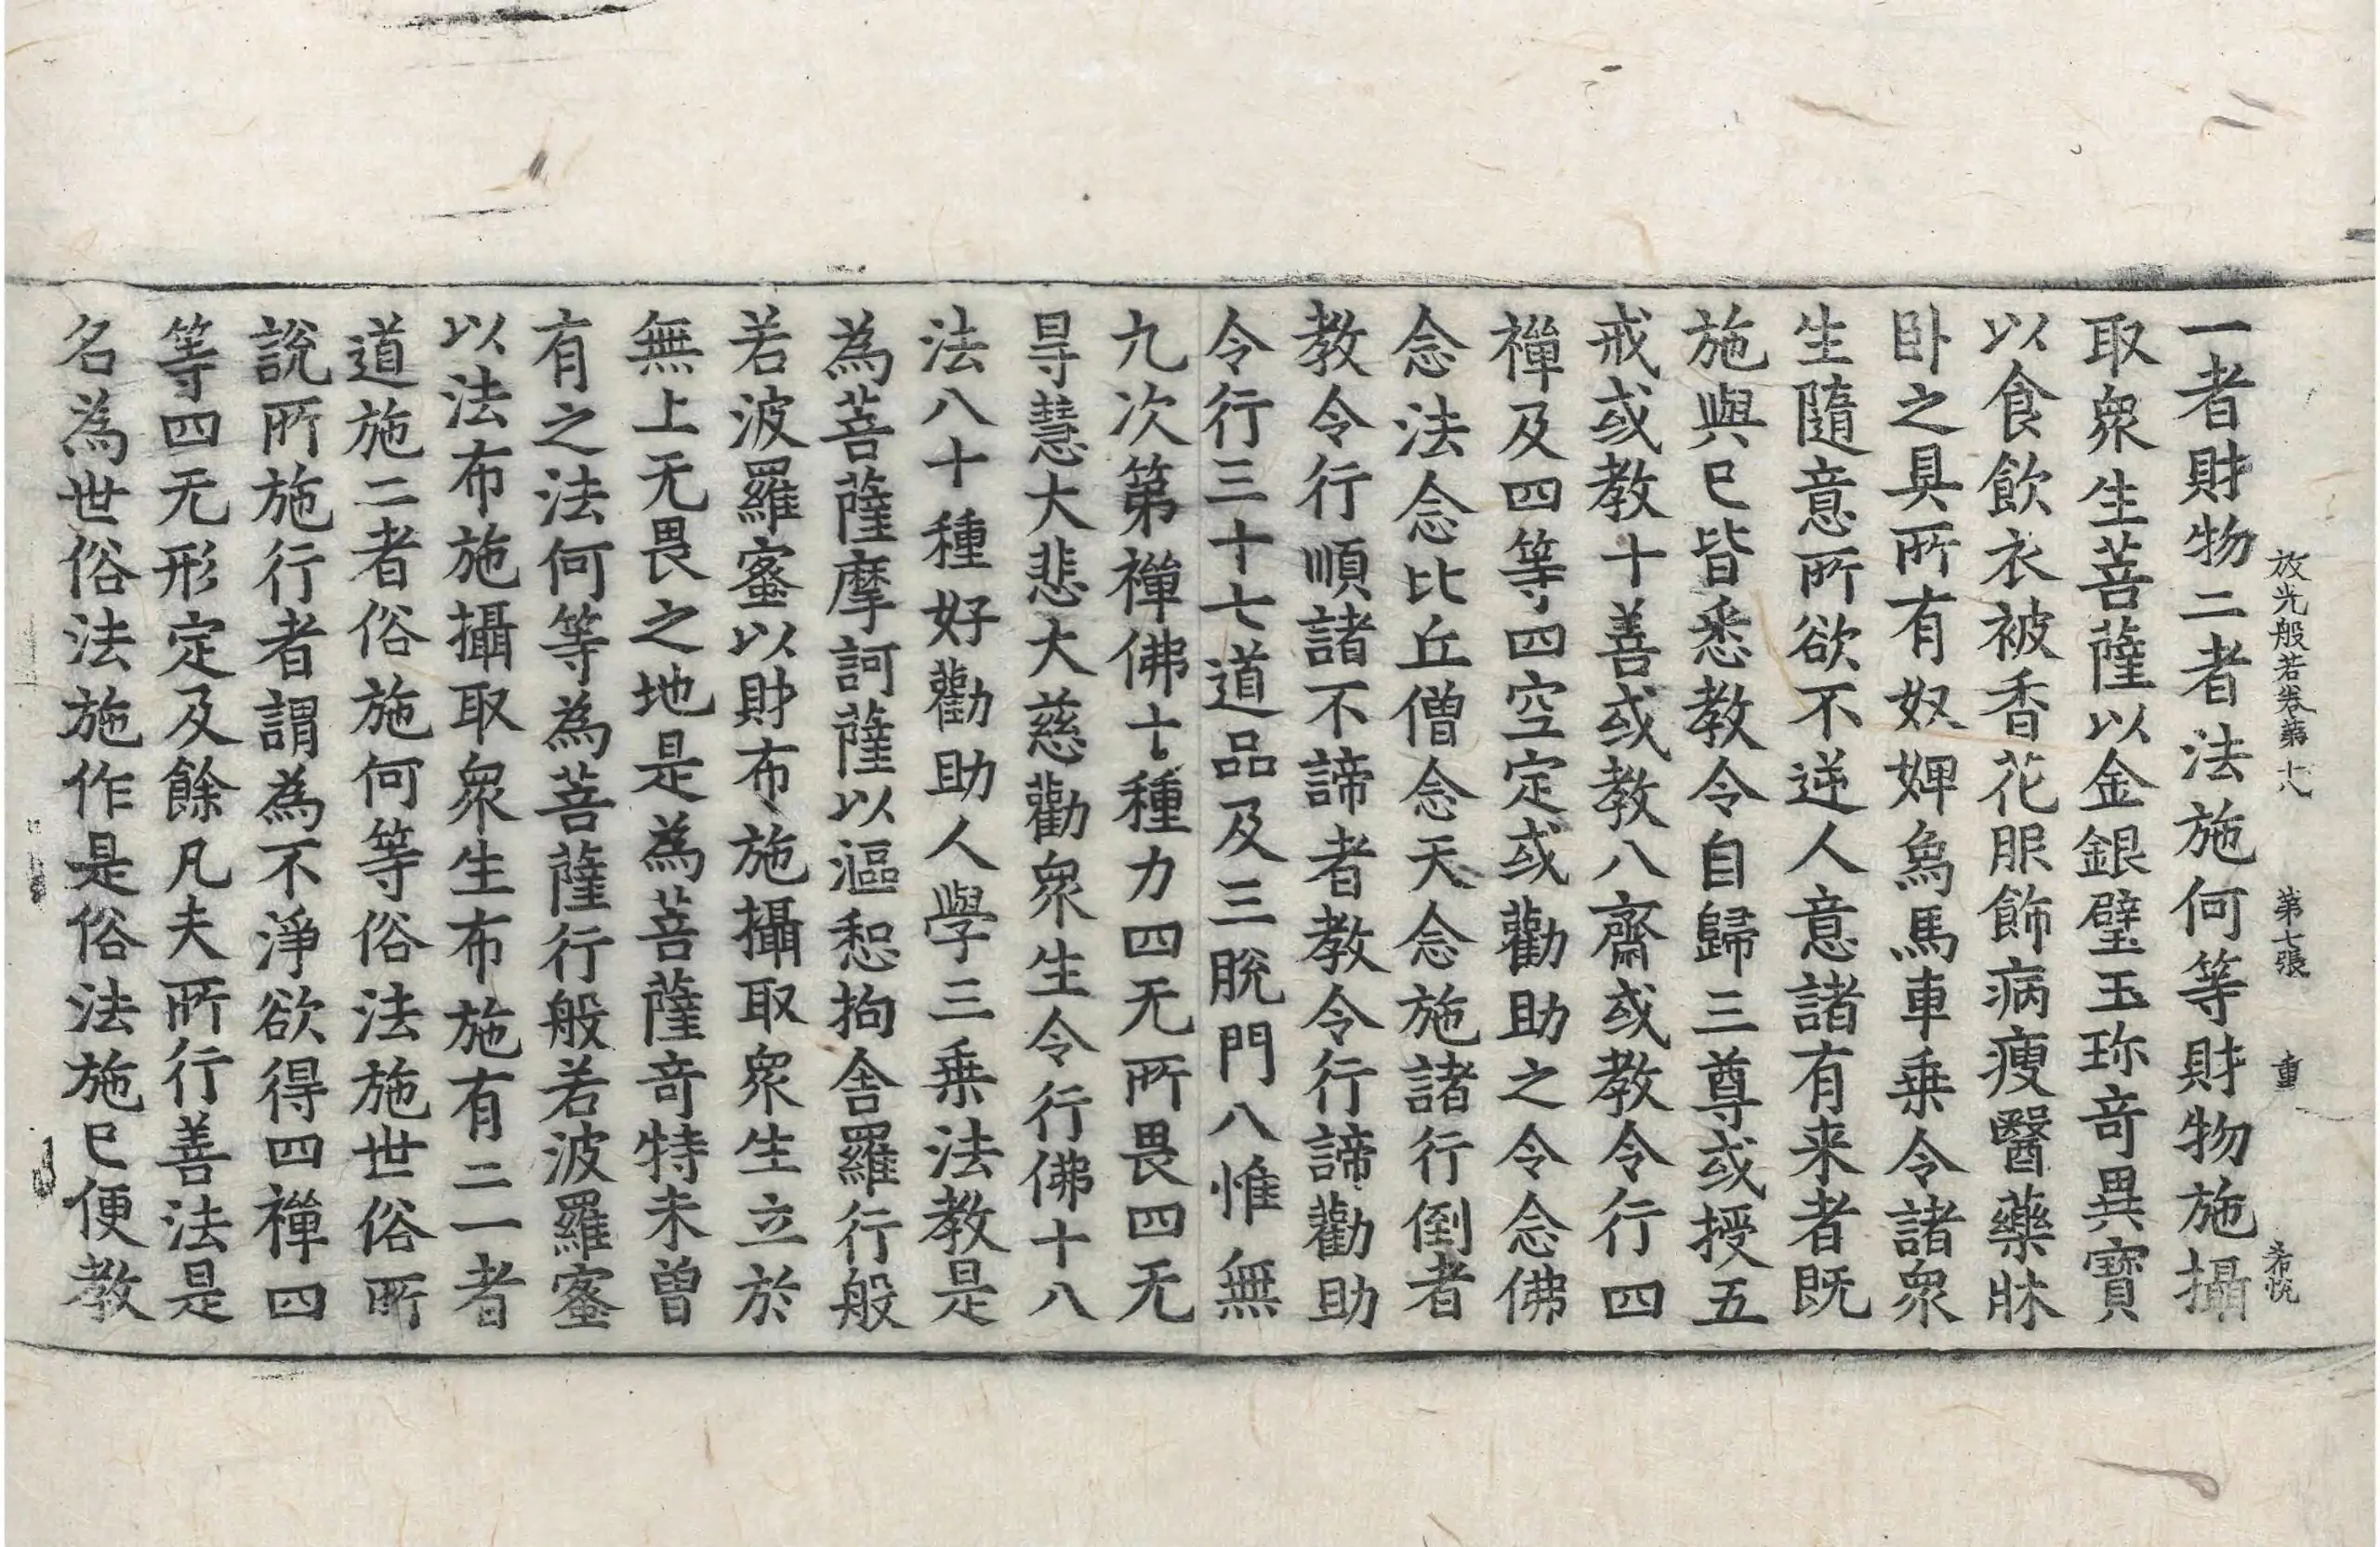 放光般若卷第十八 第七張 重 希悅
一者財物二者法施何等財物施攝
取衆生菩薩以金銀璧玉珎奇異寶
以食飮衣被香花服飾病瘦醫藥牀
卧之具所有奴婢烏馬車乗令諸衆
生隨意所欲不逆人意諸有来者既
施與已皆悉教令自歸三尊或授五
戒或教十善或教八齋或教令行四
禪及四等四空定或勸助之令念佛
念法念比丘僧念天念施諸行倒者
教令行順諸不諦者教令行諦勸助
令行三十七道品及三脫門八惟無
九次第禪佛十種力四无所畏四无
㝵慧大悲大慈勸衆生令行佛十八
法八十種好勸助人學三乗法教是
為菩薩摩訶薩以漚惒拘舎羅行般
若波羅蜜以財布施攝取衆生立於
無上无畏之地是為菩薩竒特未曽
有之法何等為菩薩行般若波羅蜜
以法布施攝取衆生布施有二一者
道施二者俗施何等俗法施世俗所
說所施行者謂為不淨欲得四禪四
等四无形定及餘凡夫所行善法是
名為世俗法施作是俗法施已便教